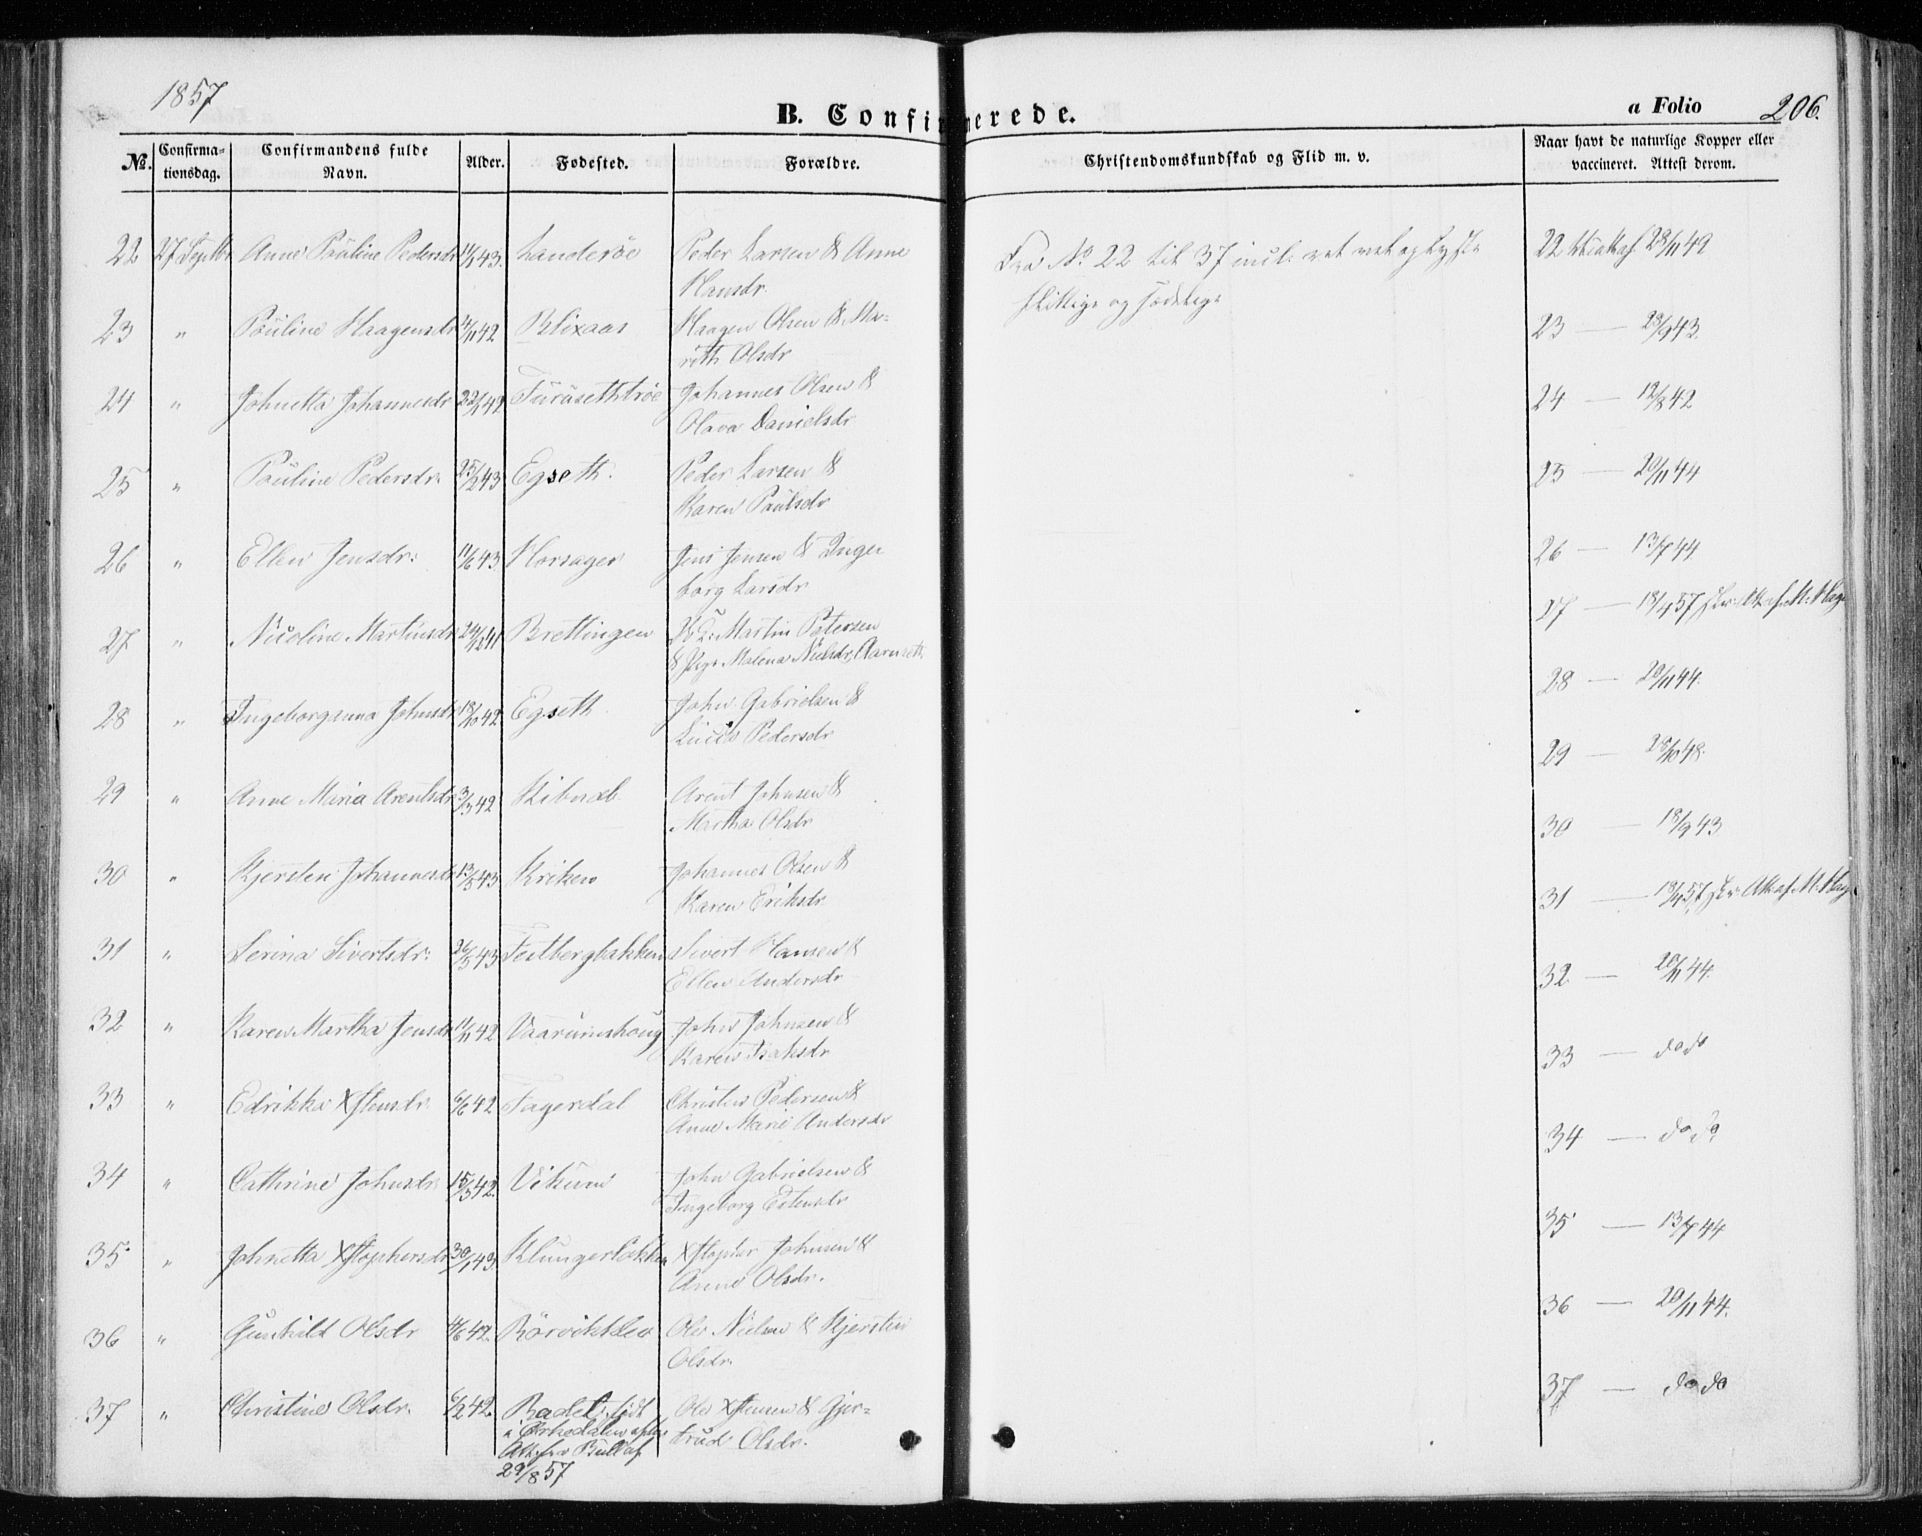 1857
B. Confirmerede.
a Folio 206.
No. Confirmationsdag. Confirmandens fulde Navn. Alder. Fødested. Forældre. Christendomskundskab og Flid m. v. Naar havt de naturlige Kopper eller vaccineret. Attest derom.
22 27 Septbr Anne Pauline Pedersdr 43. Sanderöe Peder Larsen & Anne
Hansdr.
Fra No 22 til 37 incl:
flittige og sædelige
22 28/11 49
23 " Pauline Haagensdr 42 Blixaas Haagen Olsen & Ma-
reth Olsdr
23 — 29/9 43.
24 " Johnetta Johannesdr 22/1 42 Furusethtrøe Johannes Olsen &
Olava Danielsdr
24 — 12/8 42
25 " Pauline Pedersdr. 25/2 43 Egseth. Peder Larsen &
Karen Paulsdr
25 — 20/11 44
26 " Ellen Jensdr: 11/6 43 Horsager Jens Jensen & Inge
borg Larsdr
26 — 13/7 44
27 " Nicoline Martinsdr 24/12 41 Brettingen Martin Petersen
& Pige Malena Nielsdr, Aarnseth
27 — 18/4 57
28 " Ingeborganna Johnsdr 18/10 42 Egseth John Gabrielsen &
Lucie Pedersdr
28 — 20/11 44.
29 " Anne Maria Arentsdr 3/3 42 Kibnæb Arent Johnsen &
Martha Olsdr
29 — 28/10 48.
30 " Kjersten Johannesdr 13/5 43 Kriken Johannes Olsen &
Karen Eriksdr
30 — 18/9 43
31 " Serina Sivertsdr: 26/5 43 Festbergbakken Sivert Hansen &
Ellen Andersdr
31 — 18/4 57
32 " Karen Martha Jensdr 11/11 42 Vaarumshoug John Johnsen &
Karen Isaksdr
32 — 20/11 44.
33 " Edrikka Xstensdr. 6/6 42 Fagerdal Christen Pedersen &
Anne Marie Andersdr
33 — do do
34 " Cathrine Johnsdr: 15/5 42. Vikum John Gabrielsen &
Ingeborg Estensdr
34 — do do
35 " Johnetta Xstophersdr 30/1 43. Klungerbakken Xstopher Johnsen &
Anne Olsdr.
35 — 13/7 44
36 " Gunhild Olsdr 42. Rörvikkleo Ole Nielsen & Kjersten
Olsdr.
36 — 20/11 44.
37 " Christine Olsdr. 6/2 42. Badel, födt Ole Xstensen & Gjer-
i Orkedalen efter trud Olsdr.
Att. fra Bull af
29/8 57
37 — do do